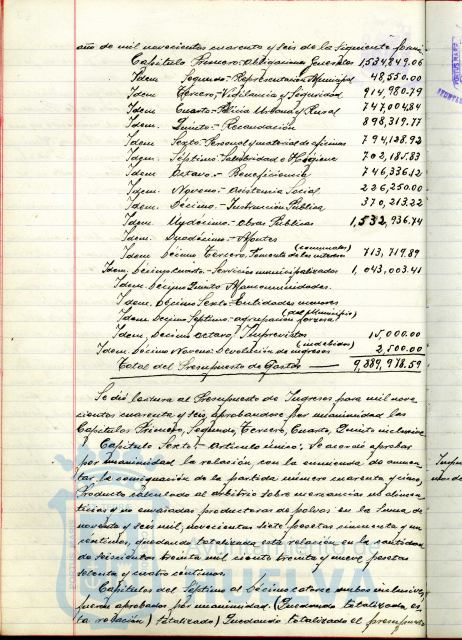 año de mil novecientos cuarenta y seis de la siguiente forma:
Capítulo Primero.- Obligaciones Generales 1.534,849.06
Idem Segundo.- Representación Municipal 48,550.00
Idem Tercero.- Vigilancia y Seguridad 914,980.79
Idem Cuarto.- Policia Urbana y Rural 747,004,84
Idem. Quinto.- Recaudación 898,319.77
Idem. Sexto.- Personal y material de oficinas 794,128,92
Idem. Séptimo.- Salubridad e Higiene 702,185.83
Idem. Octavo.- Beneficiencia 746,336,12
Idem. Noveno.- Asistencia Social 226,250.00
Idem. Décimo.- Instrucción Pública 370,213.22
Idem. Undécimo.- Obras Públicas 1,532,936.74
Idem. Duodécimo.- Montes
Idem Décimo Tercero, Fomento de los intereses (comunales) 713,719.89
Idem, Décimo Cuarto.- Servicios municipalizados 1,043,003.41
Idem. Décimo Quinto.- Mancomunidades.
Idem. Décimo Sexto.- Entidades menores
Idem. Décimo Septimo.- agrupación forzosa (del Municipio)
Idem, Décimo Octavo, Imprevistos 15,000.00
Idem. Décimo Noveno: Devolución de ingresos (indebidos) 2,500.00
Total del Presupuesto de Gastos 9,889,978.59
Se dió lectura al Presupuesto de Ingresos para mil nove
cientos cuarenta y seis, aprobandose por unanimidad los
Capítulos Primero, Segundo, Tercero, Cuarto, Quinto inclusive
Capítulo Sexto.- Artículo único: Se acordó aprobar
por unanimidad la relación, con la enmienda de aumen
tar la consignación de la partida número cuarenta y cinco,
Producto calculado al arbitrio sobre mercancias no alimen
ticias y no envasadas productoras de polvos en la suma de
noventa y seis mil, novecientas siete pesetas cincuenta y un
céntimos, quedando totalizada esta relación en la cantidad
de seiscientas treinta mil ciento treinta y nueve pesetas
setenta y cuatro céntimos.
Capítulos del Séptimo al Décimo catorce ambos inclusive,
fueron aprobados por unanimidad. (Quedando totalizada es
la robación) totalizado) Quedando totalizado el presupuesto
Ayuntamiento de
HUELVA